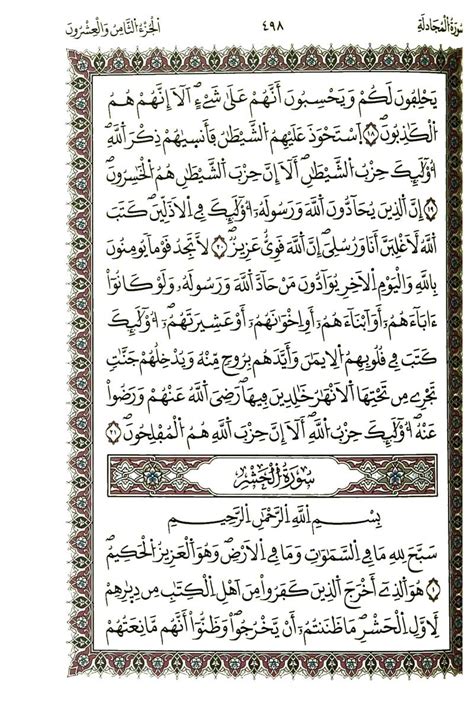 سورة المجادلة ٤٩٨ الجزء الثامن والعشرون
يَحْلِفُونَ لَكُمْ وَيَحْسِبُونَ أَنَّهُمْ عَلَىٰ شَيْءٍ أَلَا إِنَّهُمْ هُمُ
الْكَاذِبُونَ ١٨ اسْتَحْوَذَ عَلَيْهِمُ الشَّيْطَانُ فَأَنسَاهُمْ ذِكْرَ اللَّهِ
أُوْلَٰئِكَ حِزْبُ الشَّيْطَانِ أَلَا إِنَّ حِزْبَ الشَّيْطَانِ هُمُ الْخَاسِرُونَ
إِنَّ الَّذِينَ يُحَادُّونَ اللَّهَ وَرَسُولَهُ أُوْلَٰئِكَ فِي الْأَذَلِّينَ كَتَبَ
اللَّهُ لَأَغْلِبَنَّ أَنَا وَرُسُلِي إِنَّ اللَّهَ قَوِيٌّ عَزِيزٌ ٢٠ لَا تَجِدُ قَوْمًا يُومِنُونَ
بِاللَّهِ وَالْيَوْمِ الْآخِرِ يُوَادُّونَ مَنْ حَادَّ اللَّهَ وَرَسُولَهُ وَلَوْ كَانُوا
ءَابَاءَهُمْ أَوْ أَبْنَاءَهُمْ أَوْ إِخْوَانَهُمْ أَوْ عَشِيرَتَهُمْ أُوْلَٰئِكَ
كَتَبَ فِي قُلُوبِهِمُ الْإِيمَانَ وَأَيَّدَهُم بِرُوحٍ مِّنْهُ وَيُدْخِلُهُمْ جَنَّاتٍ
تَجْرِي مِن تَحْتِهَا الْأَنْهَارُ خَالِدِينَ فِيهَا رَضِيَ اللَّهُ عَنْهُمْ وَرَضُوا
عَنْهُ أُوْلَٰئِكَ حِزْبُ اللَّهِ أَلَا إِنَّ حِزْبَ اللَّهِ هُمُ الْمُفْلِحُونَ ٢١
سُورَةُ الْحَشْرِ
بِسْمِ اللَّهِ الرَّحْمَٰنِ الرَّحِيمِ
سَبَّحَ لِلَّهِ مَا فِي السَّمَاوَاتِ وَمَا فِي الْأَرْضِ وَهُوَ الْعَزِيزُ الْحَكِيمُ
١ هُوَ الَّذِي أَخْرَجَ الَّذِينَ كَفَرُوا مِنْ أَهْلِ الْكِتَابِ مِن دِيَارِهِمْ
لِأَوَّلِ الْحَشْرِ مَا ظَنَنتُمْ أَن يَخْرُجُوا وَظَنُّوا أَنَّهُم مَّانِعَتُهُمْ